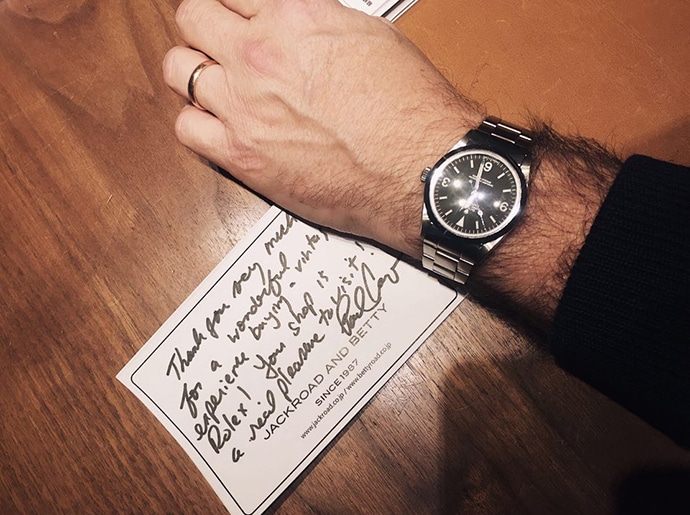 Thank you very much
for a wonderful
experience buying a vintage
Rolex! Your shop is
a real pleasure to visit!
JACKROAD AND BETTY
SINCE 1987
www.jackroad.co.jp / www.bettyroad.co.jp
6
9
3